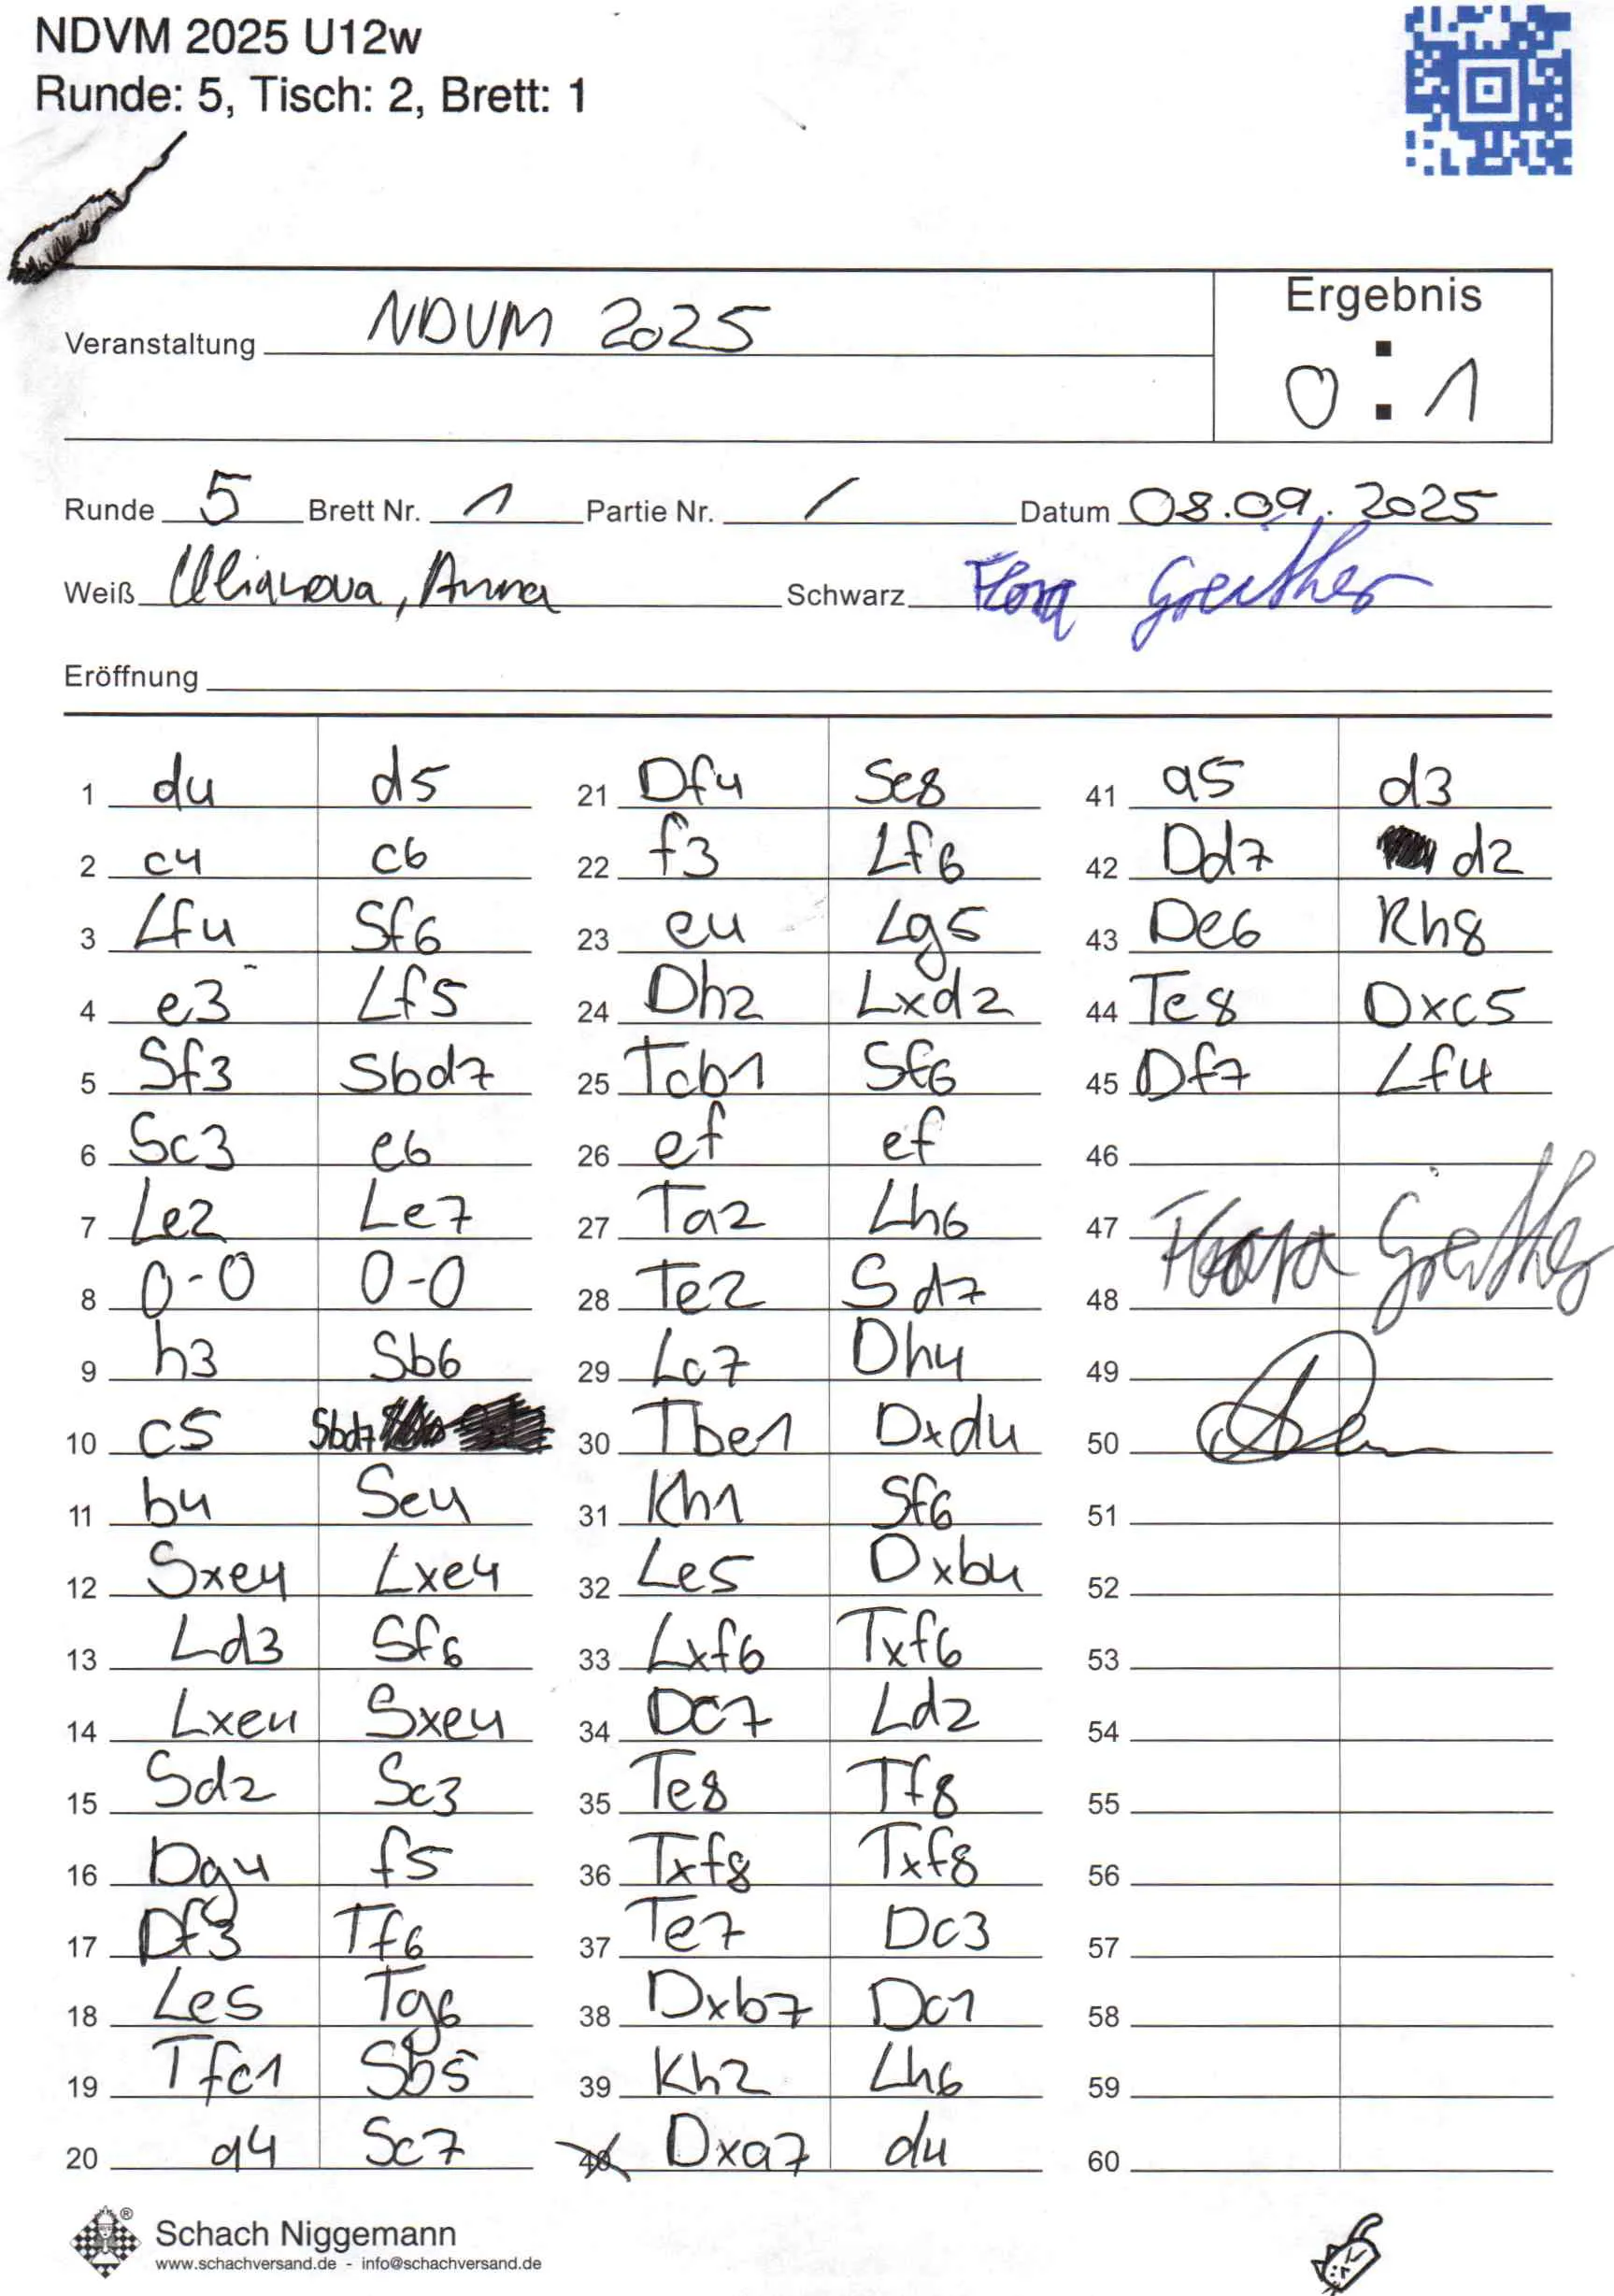 NDVM 2025 U12w
Runde: 5, Tisch: 2, Brett: 1
Veranstaltung NDVM 2025
Ergebnis
0 : 1
Runde 5 Brett Nr. 1 Partie Nr. / Datum 08.09.2025
Weiß Ulianova, Anna Schwarz Flora Greither
Eröffnung
1 d4 d5
2 c4 c6
3 Lf4 Sf6
4 e3 Lf5
5 Sf3 Sbd7
6 Sc3 e6
7 Le2 Le7
8 0-0 0-0
9 h3 Sb6
10 c5 Sbd7
11 b4 Se4
12 Sxe4 Lxe4
13 Ld3 Sf6
14 Lxe4 Sxe4
15 Sd2 Sc3
16 Dg4 f5
17 Df3 Tf6
18 Le5 Tg6
19 Tfc1 Sb5
20 a4 Sc7
21 Df4 Se8
22 f3 Lf6
23 e4 Lg5
24 Dh2 Lxd2
25 Tcb1 Sf6
26 ef ef
27 Ta2 Lh6
28 Te2 Sd7
29 Lc7 Dh4
30 Tbe1 Dxd4
31 Kh1 Sf6
32 Le5 Dxb4
33 Lxf6 Txf6
34 Dc7 Ld2
35 Te8 Tf8
36 Txf8 Txf8
37 Te7 Dc3
38 Dxb7 Dc1
39 Kh2 Lh6
40 Dxa7 d4
41 a5 d3
42 Dd7 d2
43 De6 Kh8
44 Te8 Dxc5
45 Df7 Lf4
46
47 Flora Greither
48
49
50
51
52
53
54
55
56
57
58
59
60
Schach Niggemann
www.schachversand.de - info@schachversand.de